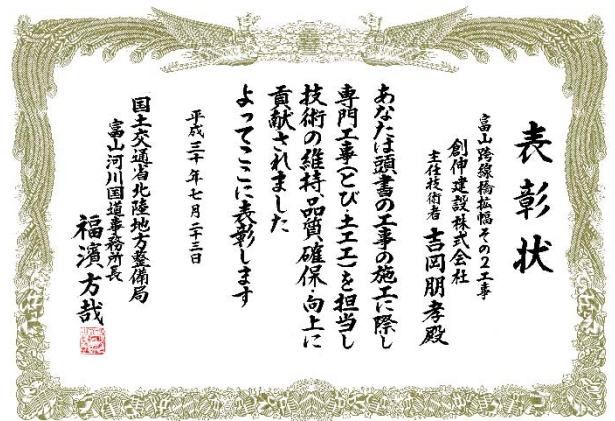 表彰状
富山跨線橋拡幅その2工事
創伸建設株式会社
主任技術者 吉岡朋孝殿
あなたは頭書の工事の施工に際し
専門工事(とび・土工工)を担当し
技術の維持・品質確保・向上に
貢献されました
よってここに表彰します
平成三十年七月二十三日
国土交通省北陸地方整備局
富山河川国道事務所長
福濱方哉